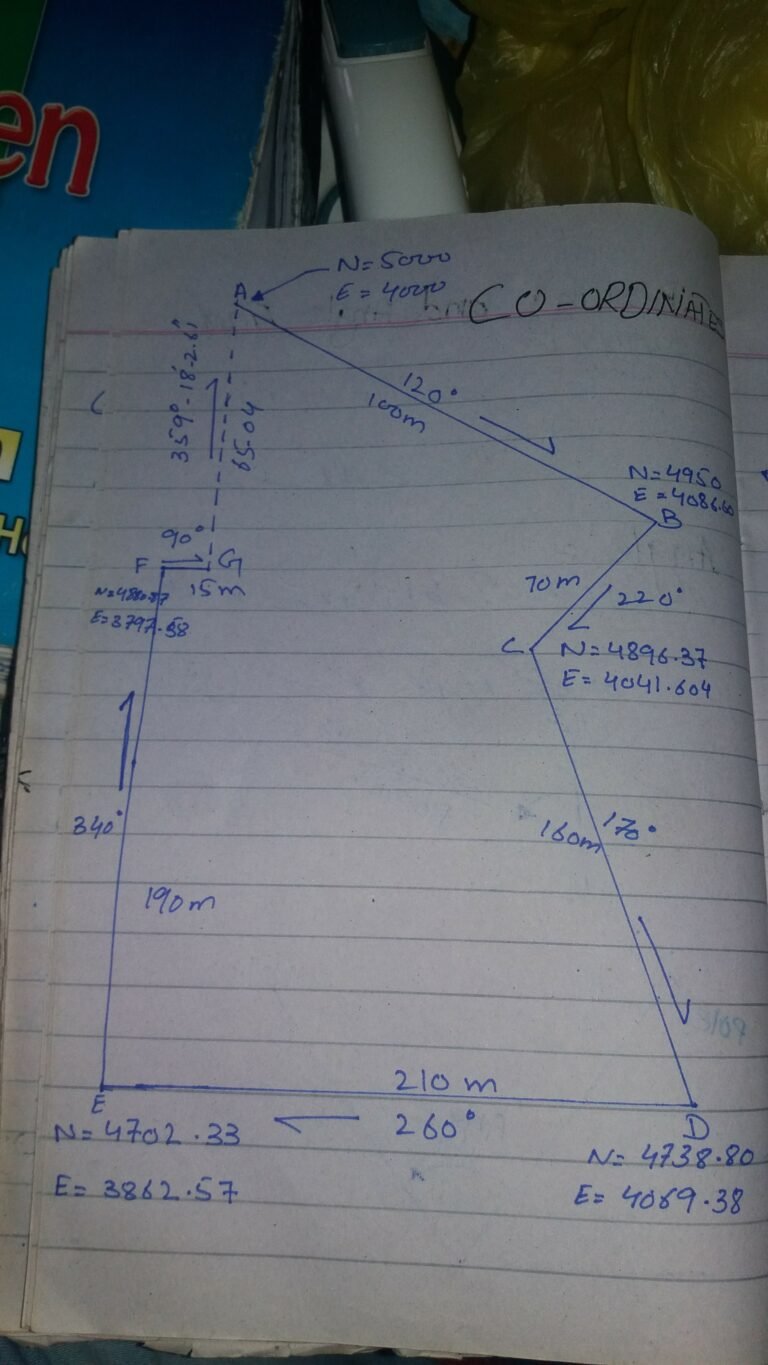 en
N=5000
A
E=4000
CO-ORDINATES
359°-18'-2.61"
65.04
120°
100m
N=4950
E=4086.60
B
90°
F
G
15m
N=4880.87
E=3797.58
70m
220°
C
N=4896.37
E=4041.604
340°
160m
170°
190m
210 m
E
260°
D
N=4702.33
N=4738.80
E=3862.57
E=4069.38